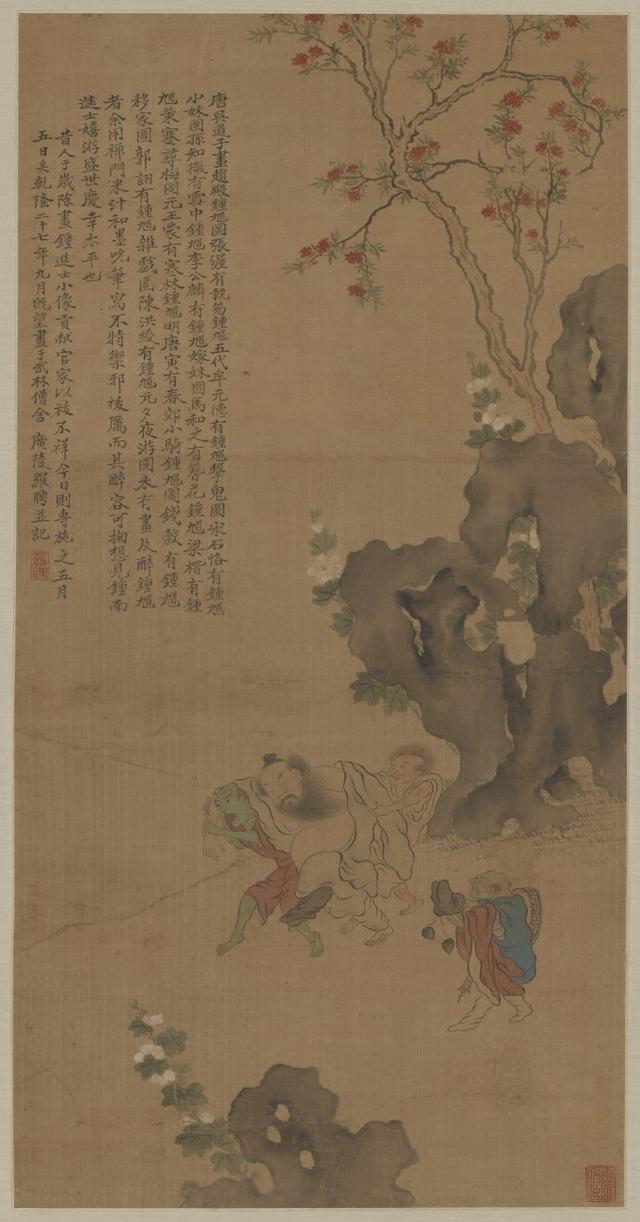 唐吳道子畫趨殿鍾馗圖張渥有執笏鍾馗五代牟元德有鍾馗擊鬼圖宋石恪有鍾馗
小妹圖孫知微有雪中鍾馗李公麟有鍾馗嫁妹圖馬和之有簪花鍾馗梁楷有鍾
馗策蹇尋梅圖元王蒙有寒林鍾馗明唐寅有春郊小騎鍾馗圖錢穀有鍾馗
移家圖郭詡有鍾馗雜戲圖陳洪綬有鍾馗元夕夜游圖未有畫及醉鍾馗
者余用禪門米汁和墨吮筆寫不特禦邪祓厲而其醉容可掬想見鍾南
進士嬉游盛世慶幸太平也
昔人于歲除畫鍾進士小像貢獻官家以祓不祥今日則專施之五月
五日矣乾隆二十七年九月既望畫于武林僧舍 廣陵羅聘並記